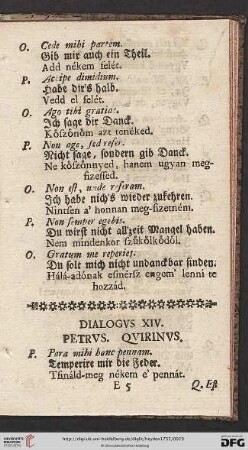 O. Cede mihi partem.
Gib mir auch ein Theil.
Add nékem felét.
P. Accipe dimidium.
Habe dir's halb.
Vedd el felét.
O. Ago tibi gratias.
Ich sage dir Danck.
Kőszőnőm azt tenéked.
P. Non age, sed refer.
Nicht sage, sondern gib Danck.
Ne kőszőnnyed, hanem ugyan meg-
fizessed.
O. Non est, unde referam.
Ich habe nich's wieder zukehren.
Nintsen a' honnan meg-fizetném.
P. Non semper egebis.
Du wirst nicht allzeit Mangel haben.
Nem mindenkor szűkőlkődől.
O. Gratum me reperies.
Du solt mich nicht undanckbar finden.
Hálá-adónak esmérsz engem' lenni te
hozzád.
DIALOGVS XIV.
PETRVS. QVIRINVS.
P. Para mihi hanc pennam.
Temperire mir die Feder.
Tsináld-meg nékem e' pennát.
E 5 Q. Est